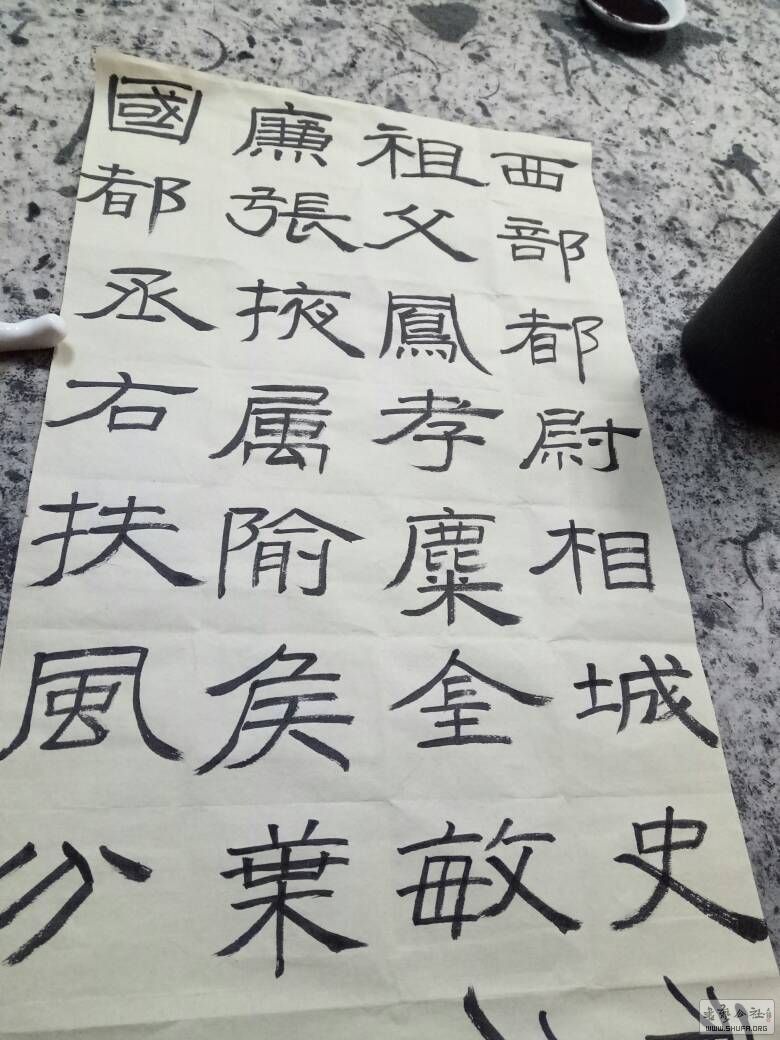 西部都尉相城史
祖父鳳孝麋金敏
廉張掖属隃侯葉
國都丞右扶風分
书艺公社
WWW.SHUFA.ORG